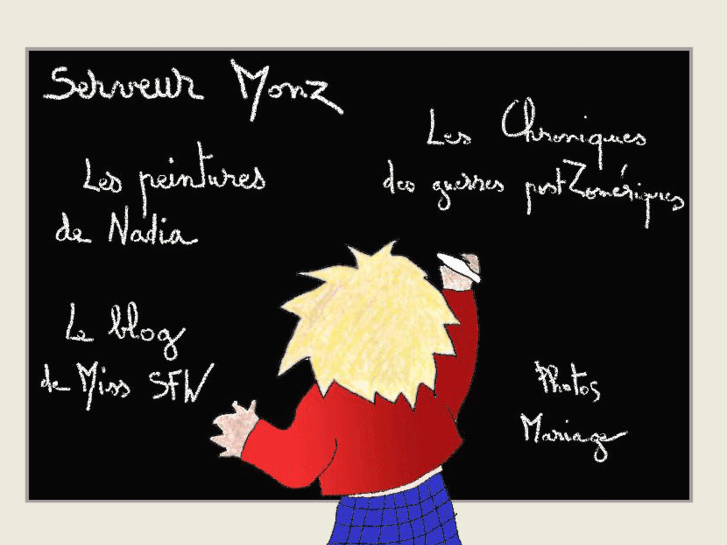 Serveur Monz
Les Chroniques
des guerres postZomériques
Les peintures
de Nadia
Le blog
de Miss SFW
Photos
Mariage